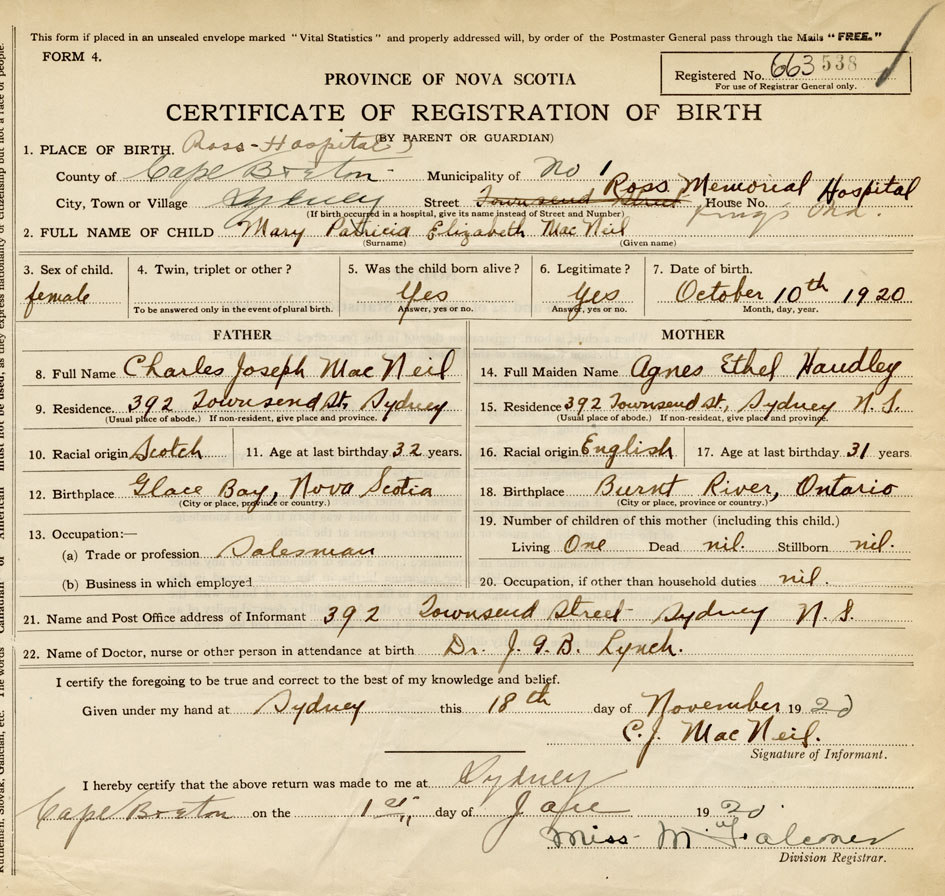 This form if placed in an unsealed envelope marked "Vital Statistics" and properly addressed will, by order of the Postmaster General pass through the Mails "FREE."
FORM 4.
Registered No. 663 538
For use of Registrar General only.
PROVINCE OF NOVA SCOTIA
CERTIFICATE OF REGISTRATION OF BIRTH
(BY PARENT OR GUARDIAN)
1. PLACE OF BIRTH. Ross-Hospital
County of Cape Breton Municipality of No 1
City, Town or Village Sydney Street Townsend Street Ross Memorial Hospital House No.
(If birth occurred in a hospital, give its name instead of Street and Number)
2. FULL NAME OF CHILD Mary Patricia Elizabeth Mac Neil
(Surname) (Given name)
3. Sex of child. 4. Twin, triplet or other? 5. Was the child born alive? 6. Legitimate? 7. Date of birth.
female Yes Yes October 10th 1920
To be answered only in the event of plural birth. Answer, yes or no. Answer, yes or no. Month, day, year.
FATHER MOTHER
8. Full Name Charles Joseph Mac Neil 14. Full Maiden Name Agnes Ethel Handley
9. Residence. 392 Townsend St, Sydney 15. Residence 392 Townsend St, Sydney N. S.
(Usual place of abode.) If non-resident, give place and province. (Usual place of abode.) If non-resident, give place and province.
10. Racial origin Scotch 11. Age at last birthday 32 years. 16. Racial origin English 17. Age at last birthday 31 years.
12. Birthplace Glace Bay, Nova Scotia 18. Birthplace Burnt River, Ontario
(City or place, province or country.) (City or place, province or country.)
13. Occupation:— 19. Number of children of this mother (including this child.)
(a) Trade or profession Salesman Living One Dead nil. Stillborn nil.
(b) Business in which employed 20. Occupation, if other than household duties nil.
21. Name and Post Office address of Informant 392 Townsend Street Sydney N. S.
22. Name of Doctor, nurse or other person in attendance at birth Dr. J. G. B. Lynch.
I certify the foregoing to be true and correct to the best of my knowledge and belief.
Given under my hand at Sydney this 18th day of November 1920
C. J. Mac Neil.
Signature of Informant.
I hereby certify that the above return was made to me at Sydney
Cape Breton on the 1st day of 1920
Miss M Falconer
Division Registrar.